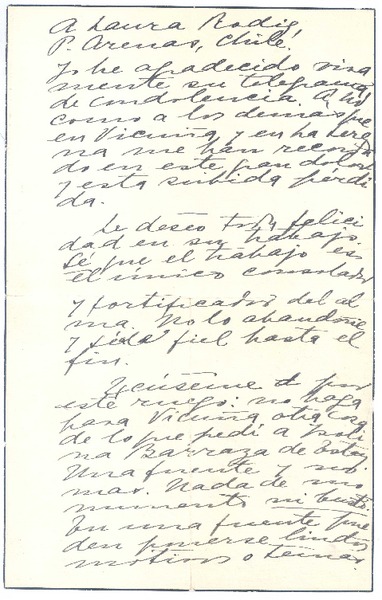 A Laura Rodig
P. Arenas, Chile.
Yo he agradecido viva
mente su telegrama
de condolencia. A Ud
como a los demas que
en Vicuña y en La Sere
na me han recorda
do en este gran dolor
y esta subida pérdi
da.
Le deseo toda felici
dad en su trabajo.
Sé que el trabajo es
el único consolador
y fortificador del al
ma. No lo abandone
y séale fiel hasta el
fin.
Excúseme Ud por
este ruego: no haga
para Vicuña otra cosa
de lo que pedí a Isoli
na Barraza de Estay.
Una fuente y no
mas. Nada de mo
numento ni busto.
En una fuente pue
den ponerse lindos
motivos o temas.